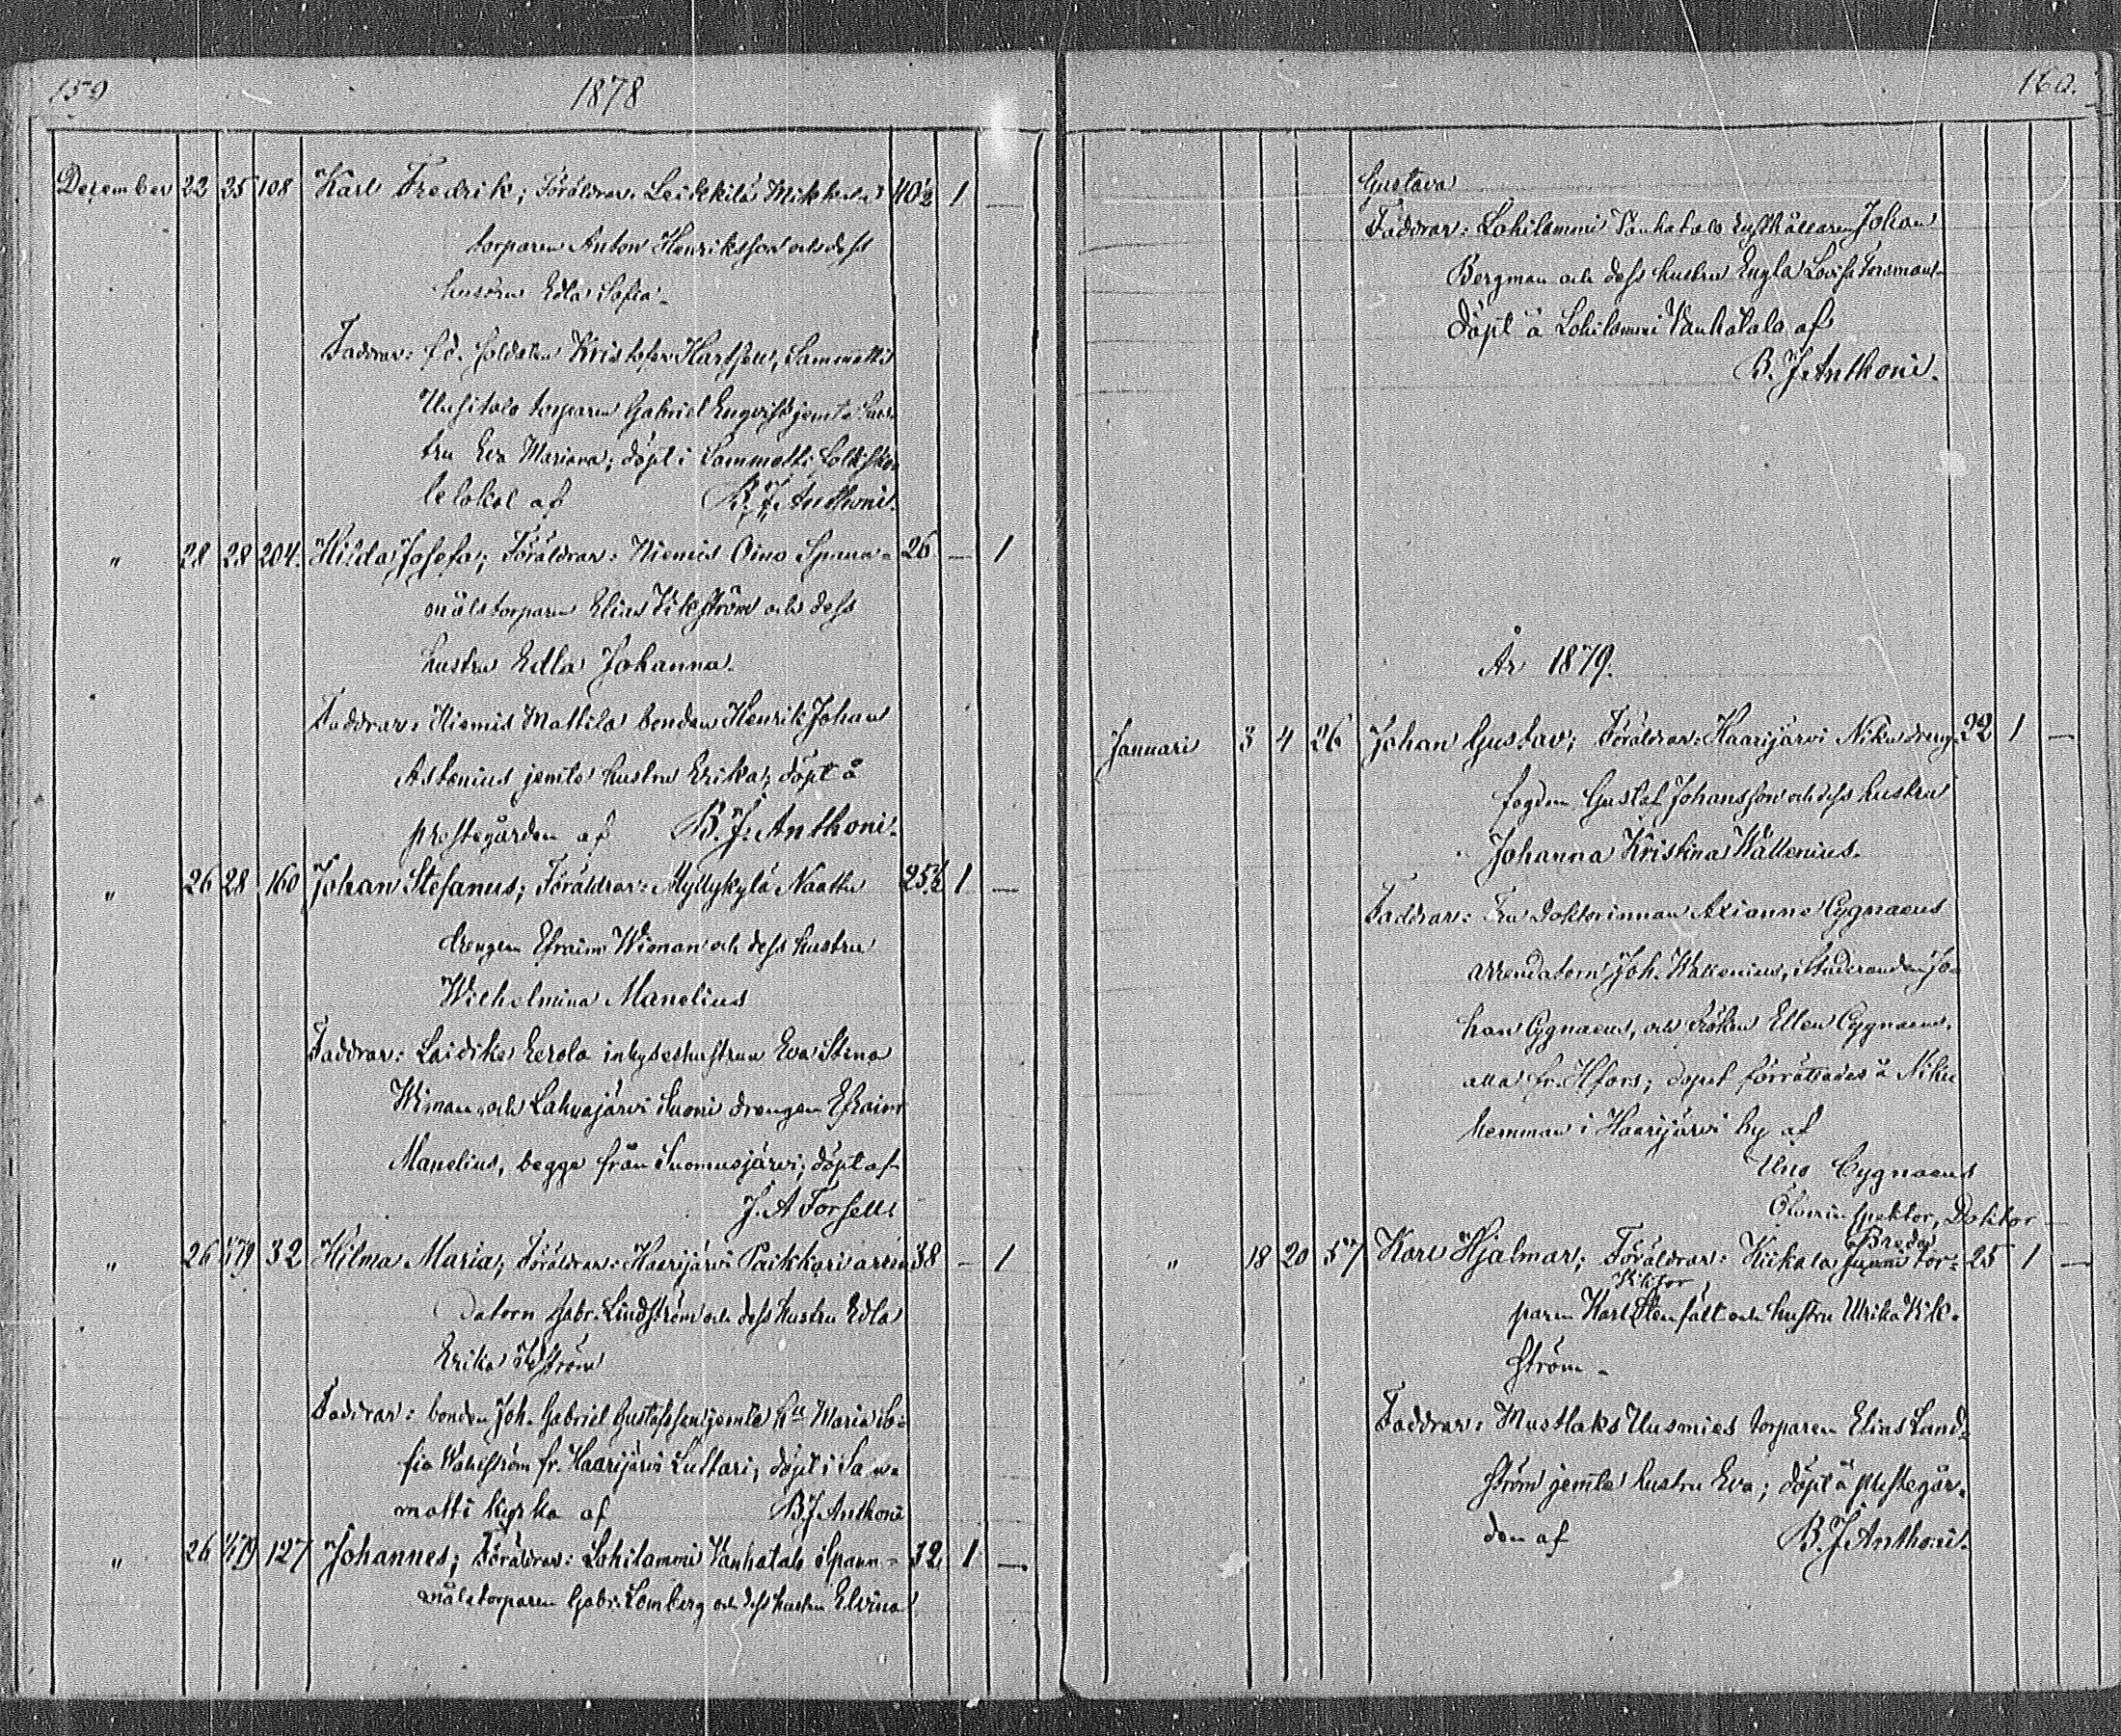 159
1878
December 22 25 108 Karl Fredrik; Föräldrar: Leikkilä Mikkola 40½ 1 —
torparen Anton Henriksson och dess
hustru Edla Sofia.
Faddrar: f.d. soldaten Kristofer Hartsell, Sammatti
Uusitalo torparen Gabriel Engvist jemte hus-
tru Eva Mariana; döpt i Sammatti folksko-
lelokal af B. J. Anthoni.
" 28 28 204. Hilda Josefa; Föräldrar: Niemis Oino Spann- 26 — 1
målstorparen Elias Vikström och dess
hustru Edla Johanna.
Faddrar: Niemis Mattila bonden Henrik Johan
Astenius jemte hustru Erika; döpt å
prestegården af B. J. Anthoni.
" 26 28 160 Johan Stefanus; Föräldrar: Myllykylä Naattu 25½ 1 —
drengen Efraim Wiman och dess hustru
Wilhelmina Manelius
Faddrar: Laidike Eerola inhyseshustrun Eva Stina
Wiman och Lahnajärvi Suoni drengen Efraim
Manelius, begge från Suomusjärvi; döpt af
J. A Forsell
" 26 1/1 79 32 Hilma Maria; Föräldrar: Haarijärvi Paikkari arren 38 — 1
datorn Gabr. Lindström och dess hustru Edla
Erika Öhström
Faddrar: bonden Joh. Gabriel Gustafsson jemte hu Maria So-
fia Wahlström fr. Haarijärvi Luttari; döpt i Sam-
matti kyrka af B J Anthoni
" 26 1/1 79 127 Johannes; Föräldrar: Lohilammi Vanhatalo Spann- 32 1 —.
målstorparen Gabr. Lomberg och dess hustru Elvina
160.
Gustava
Faddrar: Lohilammi Vanhatalo Johan
Bergman och dess hustru Engla Lovisa Forsman
döpt å Lohilammi Vanhatalo af
B. J. Anthoni.
År 1879.
Januari 3 4 26 Johan Gustav; Föräldrar: Haarijärvi Niku dreng- 22 1 —
fogden Gustaf Johansson och dess hustru
Johanna Kristina Wallenius.
Faddrar: Fru Doktorinnan Axianne Cygnaeus
arrendatorn Joh. Wallenius, Studeranden Jo-
han Cygnaeus, och fröken Ellen Cygnaeus,
alla fr. Hfors; dopet förrättades å Niku
hemman i Haarijärvi by af
Uno Cygnaeus
Öfverinspektor, Doktor
" 18 20 57 Karl Hjalmar; Föräldrar: Kiikala tor- 25 1 —
Viktor
paren Karl Stenfält och hustru Ulrika Vik-
ström.
Faddrar: Mustlaks Uusmies torparen Elias Lund-
ström jemte hustru Eva; döpt å prestegår-
den af B. J. Anthoni.